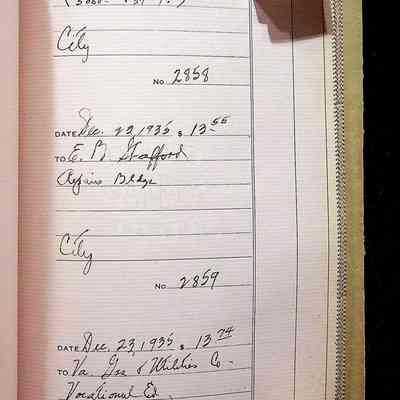 City
No. 2858
DATE Dec. 23, 1935 $ 13.55
TO E. B. Stafford
Repairs Bldgs
City
No. 2859
DATE Dec. 23, 1935 $ 13.74
TO Va. Gas & Utilities Co.
Vocational Ed.